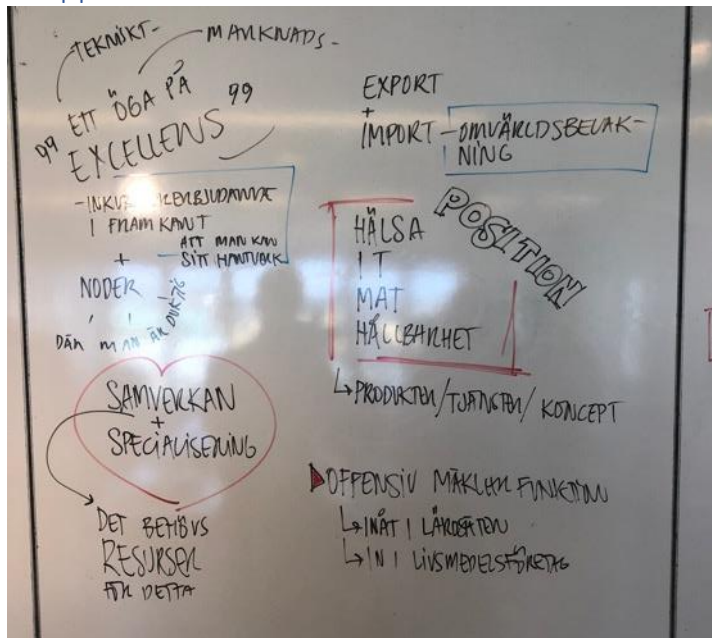 TEKNISKT-
MARKNADS-
"ETT ÖGA PÅ "
EXCELLENS
-INKU
I FRAMKANT
ATT MAN KAN
SITT HANTVERK
+
NODER
DÄR MAN ÄR DUKTIG
SAMVERKAN
+
SPECIALISERING
DET BEHÖVS
RESURSER
FÖR DETTA
EXPORT
+
IMPORT - OMVÄRLDSBEVAK-
NING
POSITION
HÄLSA
IT
MAT
HÅLLBARHET
↳ PRODUKTER/TJÄNSTER/KONCEPT
OFFENSIV MÄKLAR FUNKTION
↳ INÅT I LÄROSÄTEN
↳ IN I LIVSMEDELSFÖRETAG